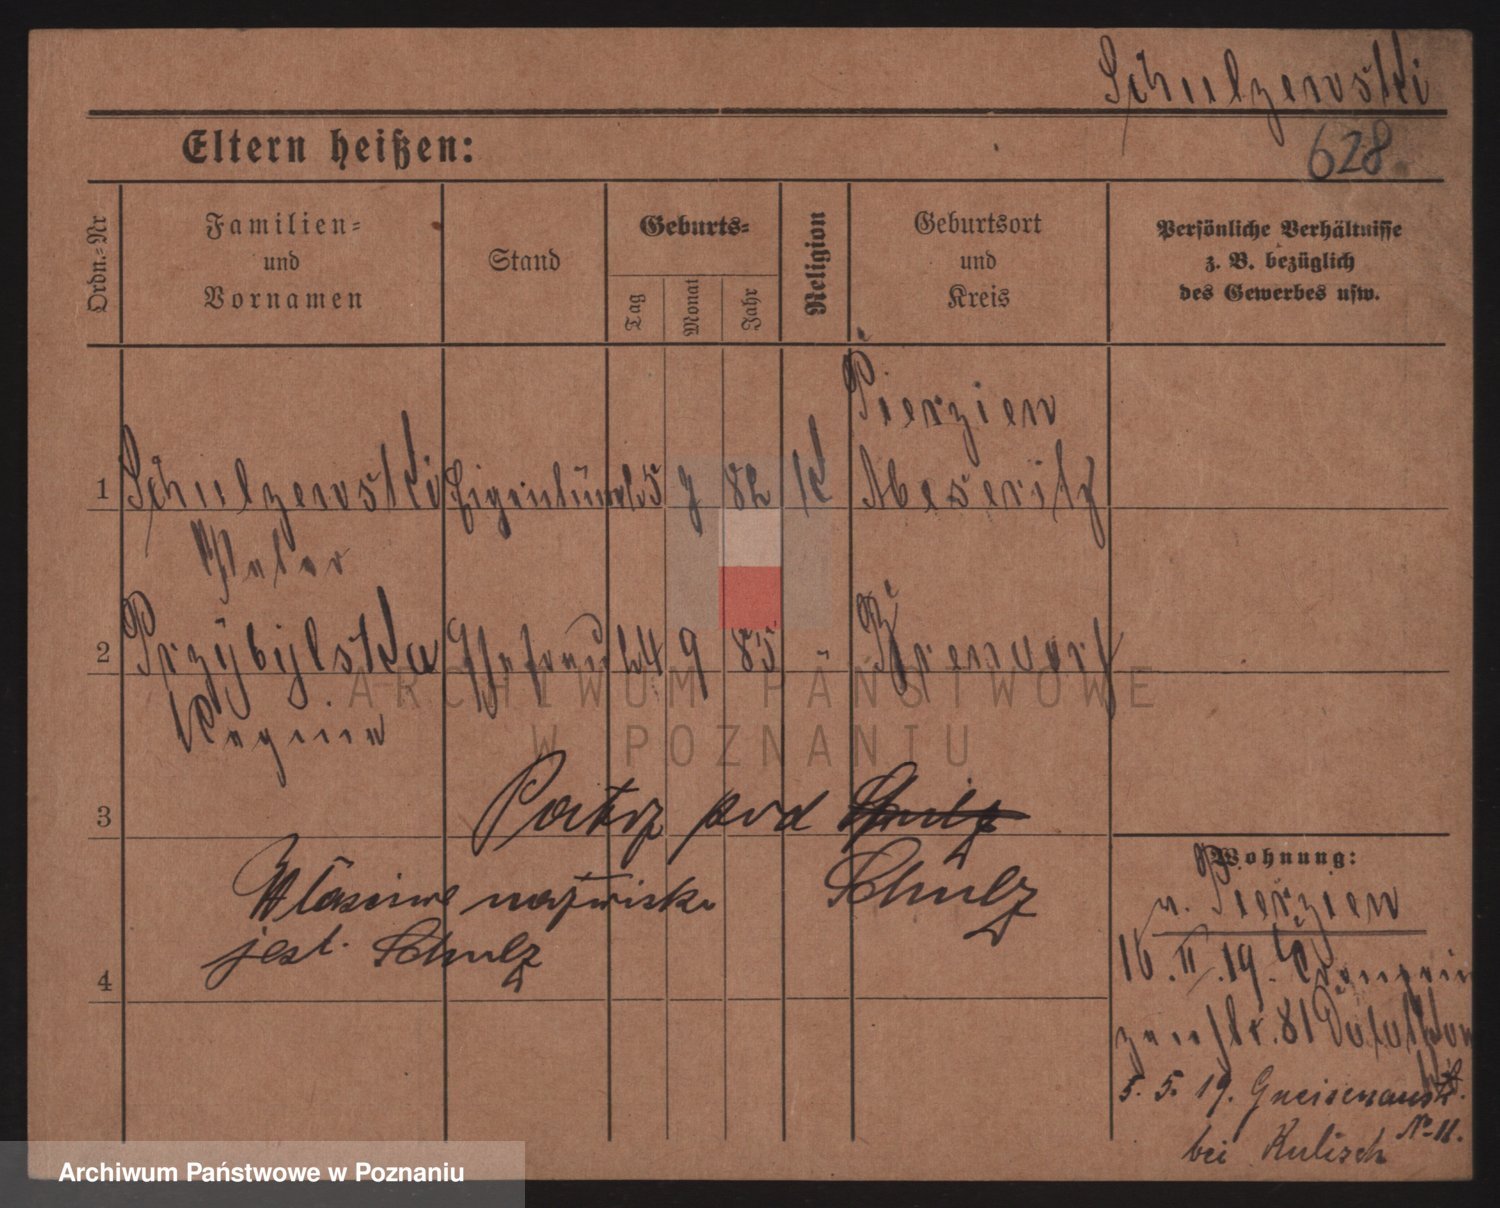 Schulzewski
628
Eltern heißen:
Ordn.=Nr
Familien=
und
Vornamen
Stand
Geburts=
Tag
Monat
Jahr
Religion
Geburtsort
und
Kreis
Persönliche Verhältnisse
z. B. bezüglich
des Gewerbes usw.
Pierzien
1 Schulzewski 25 7 82 K Meseritz
Peter
2 Przybylska Ehefrau 24 9 85
Regina
3 Patrz pod Schulz
Schulz
Właściwe nazwisko
jest Schulz
4
Wohnung:
n. Pierzien
16. II. 19.
81
5. 5. 19. Gneisenaustr.
No 11.
bei Kulisch
ARCHIWUM PAŃSTWOWE
W POZNANIU
Archiwum Państwowe w Poznaniu